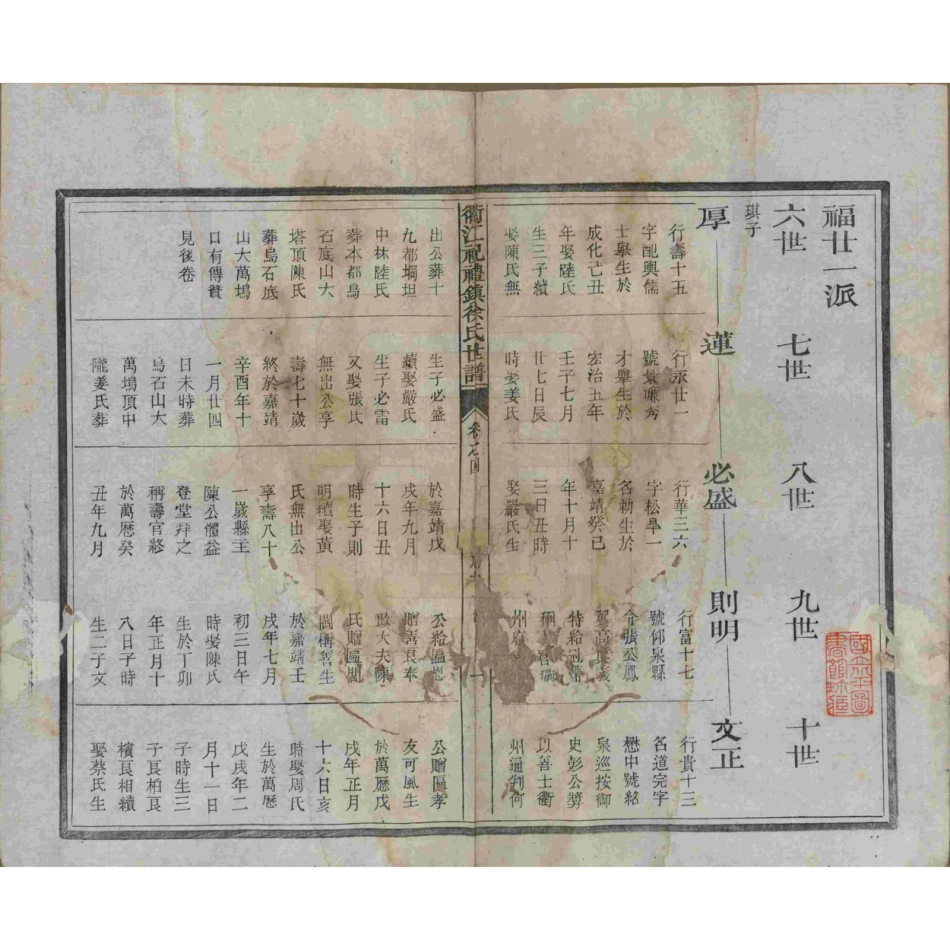 福廿一派
六世 七世 八世 九世 十世
琪子
厚 蓮 必盛 則明 文正
行壽十五
字配輿儒
士舉生於
成化己丑
年娶陸氏
生三子續
娶陳氏無
出公葬十
九都塌坦
中林陸氏
葬本都烏
石底山大
塔頂陳氏
葬烏石底
山大萬塢
口有傳贊
見後卷
行永廿一
號
才舉生於
宏治五年
壬子七月
廿七日辰
時娶姜氏
生子必盛
續娶嚴氏
生子必雷
又娶張氏
無出公享
壽七十歲
終於嘉靖
辛酉年十
一月廿四
日未時葬
烏石山大
萬塢頂中
隴姜氏葬
行華三六
字松皐一
名勑生於
嘉靖癸巳
年十月十
三日丑時
娶嚴氏生
於嘉靖戊
戌年九月
十六日丑
時生子則
明續娶黃
氏無出公
享壽八十
一歲縣主
陳公體益
登堂拜之
稱壽官終
於萬厯癸
丑年九月
行富十七
號仰泉縣
令張公鳳
翼高其義
特給冠帶
州府
公給區
贈善良奉
政大夫陳
氏贈區閭
閻稱善生
於嘉靖壬
戌年七月
初三日午
時娶陳氏
生於丁卯
年正月十
八日子時
生二子文
行貴十三
名道完字
懋中號紹
泉巡按御
史彭公奬
以善士衢
州通判何
公贈區孝
友可風生
於萬厯戊
戌年正月
十六日亥
時娶周氏
生於萬厯
戊戌年二
月十一日
子時生三
子良柏良
檳良相續
娶蔡氏生
衢江祝禮鎮徐氏世譜
卷之四